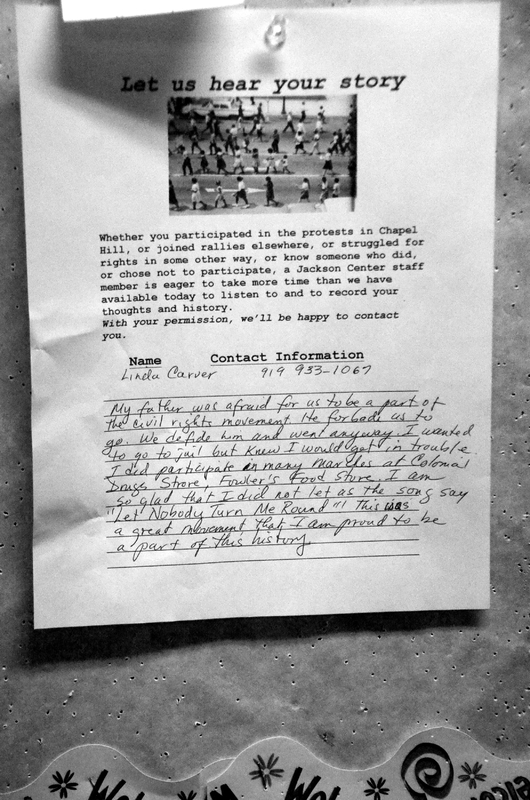 Let us hear your story
Whether you participated in the protests in Chapel
Hill, or joined rallies elsewhere, or struggled for
rights in some other way, or know someone who did,
or chose not to participate, a Jackson Center staff
member is eager to take more time than we have
available today to listen to and to record your
thoughts and history.
With your permission, we'll be happy to contact
you.
Name Contact Information
Linda Carver 919 933-1067
My father was afraid for us to be a part of
the civil rights movement. He forbade us to
go. We defide him and went anyway. I wanted
to go to jail but knew I would get in trouble.
I did participate in many marches at Colonial
Drugs Strore, Fowler's Food Store. I am
so glad that I did not let as the song say
"Let Nobody Turn Me Round"! This was
a great movement that I am proud to be
a part of this history.